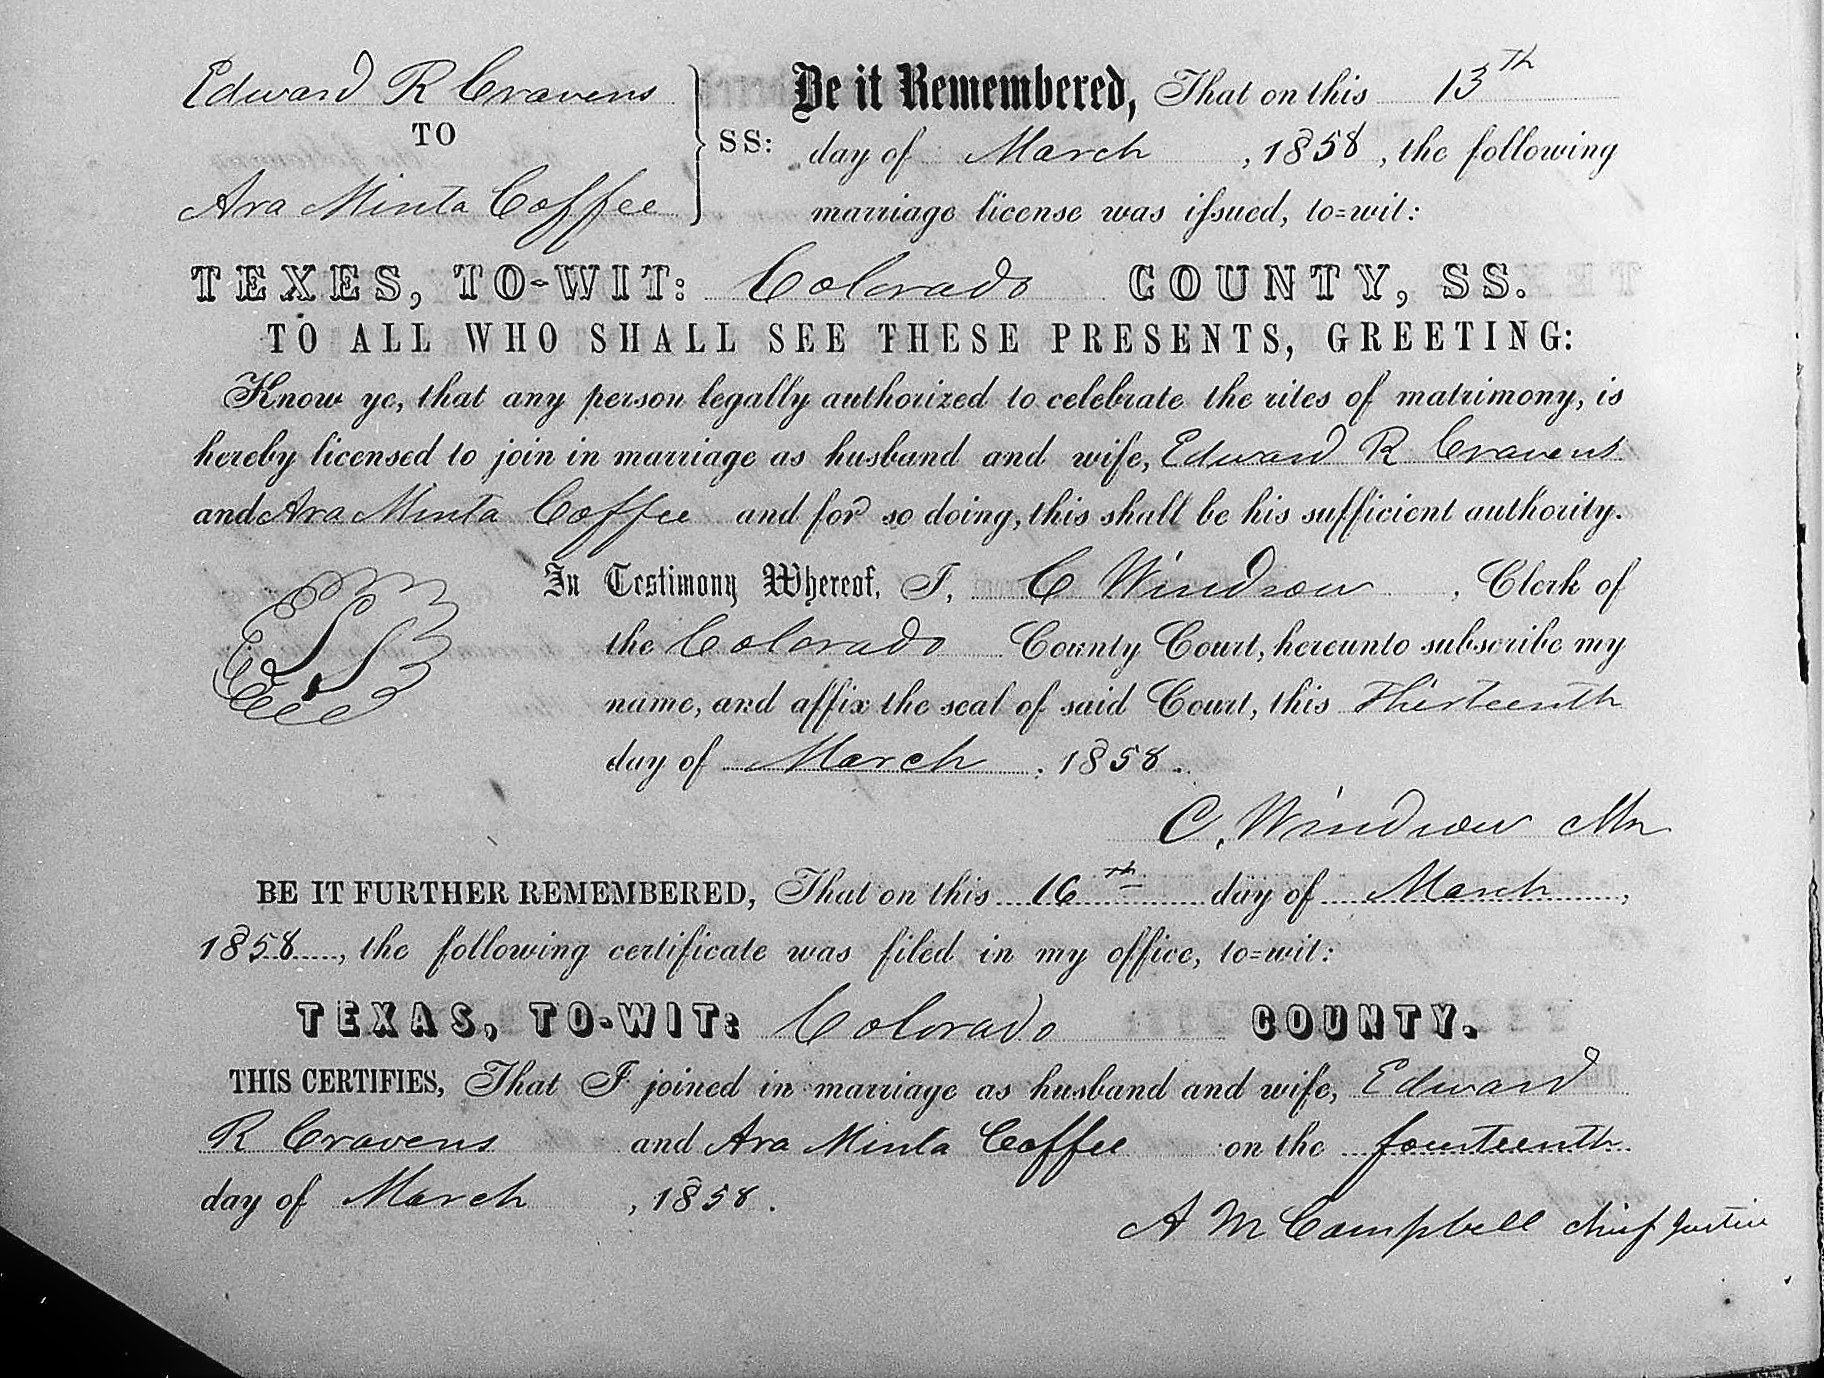 Edward R Cravens
TO
Ara Minta Coffee
SS:
Be it Remembered, That on this 13th
day of March, 1858, the following
marriage license was issued, to=wit:
TEXES, TO-WIT: Colorado COUNTY, SS.
TO ALL WHO SHALL SEE THESE PRESENTS, GREETING:
Know ye, that any person legally authorized to celebrate the rites of matrimony, is
hereby licensed to join in marriage as husband and wife, Edward R Cravens
and Ara Minta Coffee and for so doing, this shall be his sufficient authority.
LS
In Testimony Whereof, I, C Windrow, Clerk of
the Colorado County Court, hereunto subscribe my
name, and affix the seal of said Court, this Thirteenth
day of March, 1858.
C. Windrow
BE IT FURTHER REMEMBERED, That on this 16th day of March,
1858, the following certificate was filed in my office, to=wit:
TEXAS, TO-WIT: Colorado COUNTY.
THIS CERTIFIES, That I joined in marriage as husband and wife, Edward
R Cravens and Ara Minta Coffee on the fourteenth
day of March, 1858.
A M Campbell chief Justice